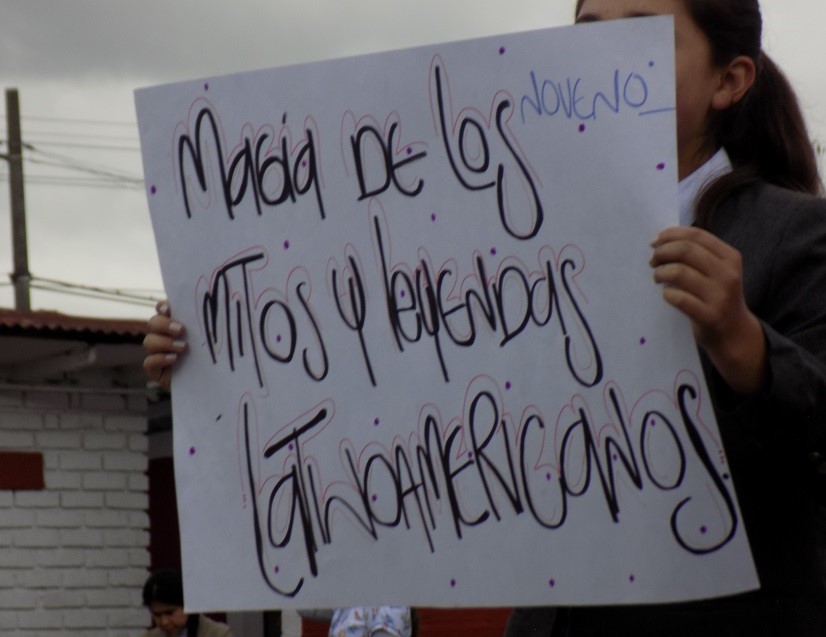 Magia de los
NOVENO
Mitos y leyendas
Latinoamericanos